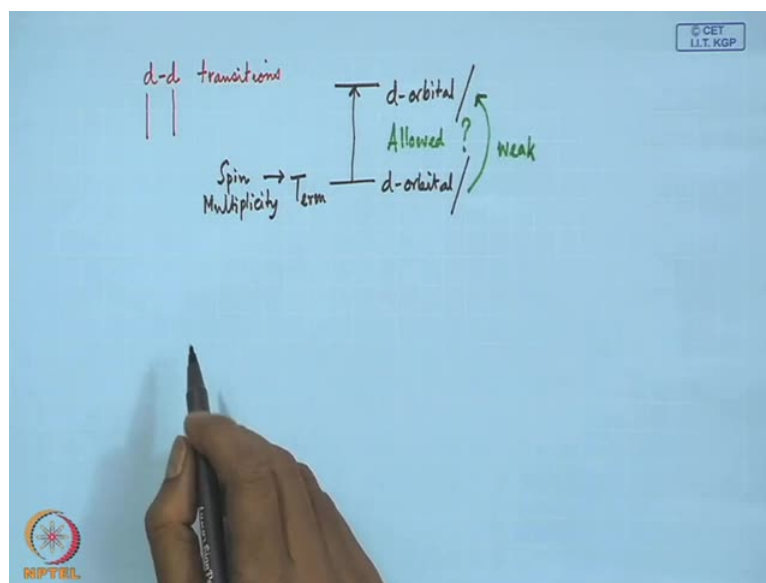 © CET
I.I.T. KGP
d-d transitions
d-orbital
Allowed ?
weak
Spin → Term
Multiplicity
d-orbital
NPTEL